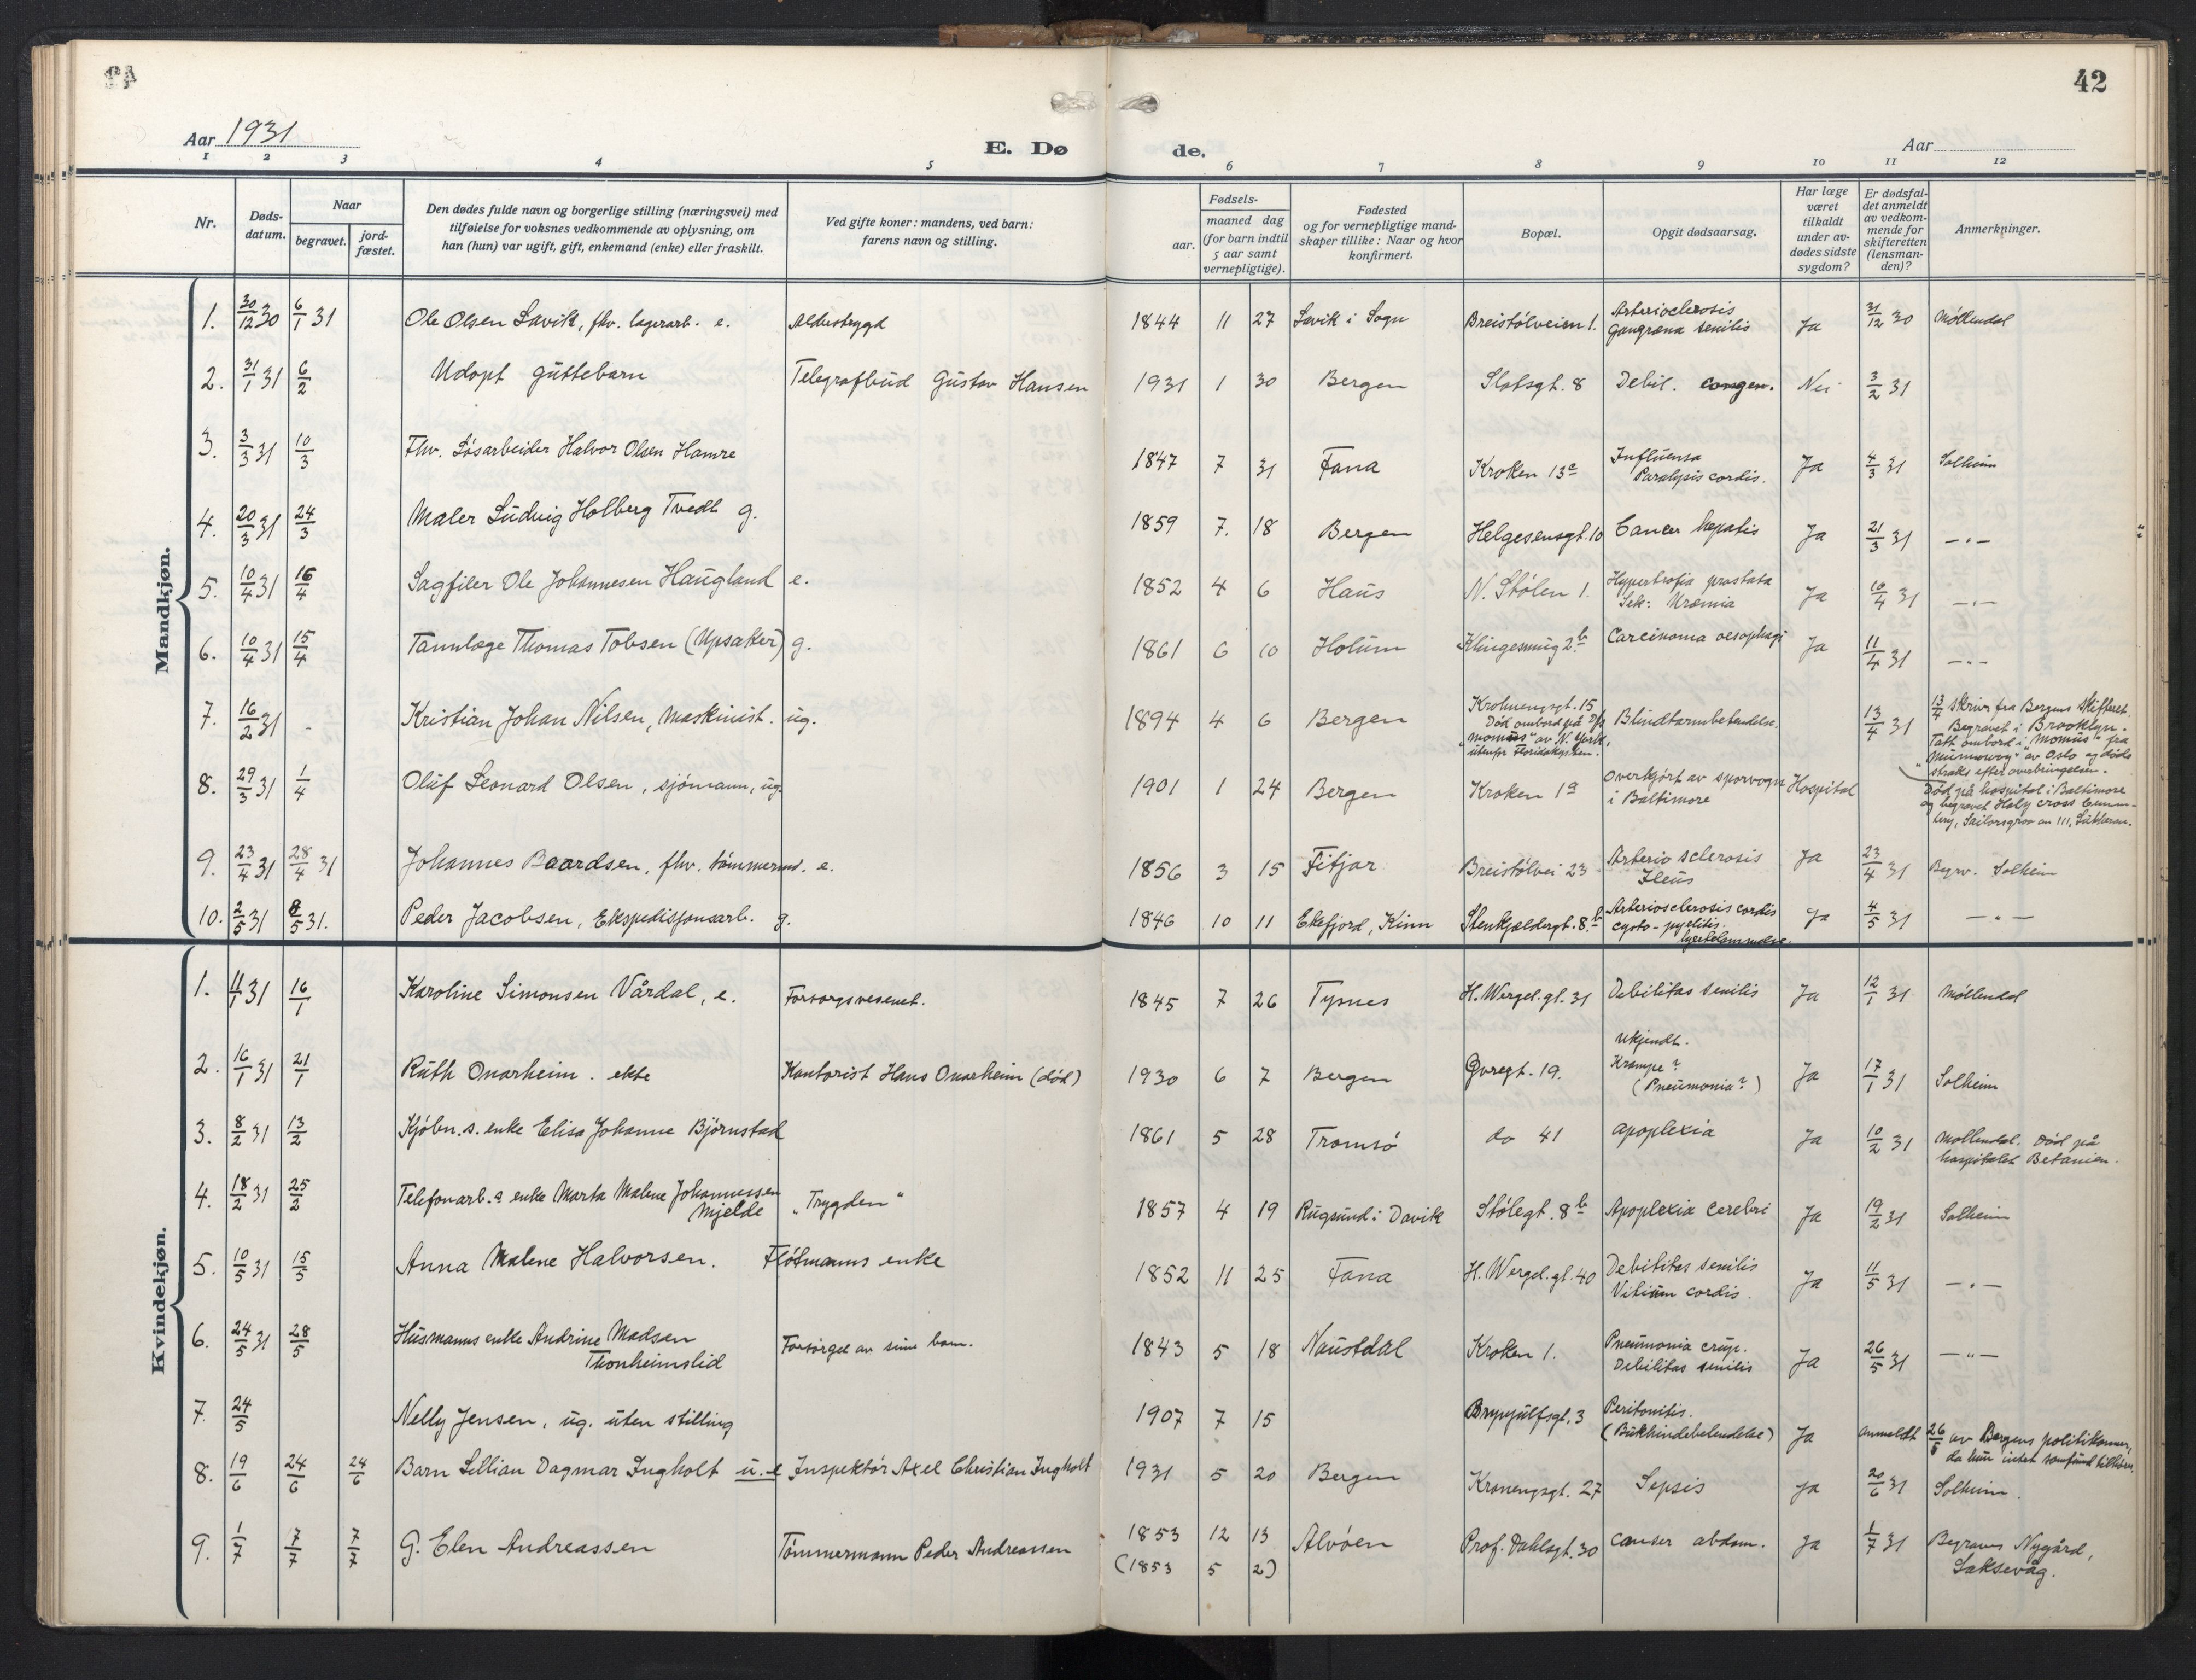 42
Aar 1931
E. Dø
de.
Aar
1 2 3 4 5 6 7 8 9 10 11 12
Nr.
Døds-
datum.
Naar
begravet.
jord-
fæstet.
Den dødes fulde navn og borgerlige stilling (næringsvei) med
tilføielse for voksnes vedkommende av oplysning, om
han (hun) var ugift, gift, enkemand (enke) eller fraskilt.
Ved gifte koner: mandens, ved barn:
farens navn og stilling.
Fødsels-
aar.
maaned dag
(for barn indtil
5 aar samt
vernepligtige).
Fødested
og for vernepligtige mand-
skaper tillike: Naar og hvor
konfirmert.
Bopæl.
Opgit dødsaarsag.
Har læge
været
tilkaldt
under av-
dødes sidste
sygdom?
Er dødsfal-
det anmeldt
av vedkom-
mende for
skifteretten
(lensman-
den)?
Anmerkninger.
Mandkjøn.
1. 30/12 30 6/1 31 Ole Olsen Lavik, fhv. lagerarb. e. Alderstrygd 1844 11 27 Lavik i Sogn Breistølveien 1. Arteriosclerosis
Gangræna senilis Ja 31/12 30 Møllendal
2. 31/1 31 6/2 Udøpt guttebarn Telegrafbud Gustav Hansen 1931 1 30 Bergen Slotsgt. 8 Debil. congen. Nei 3/2 31
3. 3/3 31 10/3 Fhv. Løsarbeider Halvor Olsen Hamre 1847 7 31 Fana Kroken 13a Influensa
Paralysis cordis. Ja 4/3 31 Solheim
4. 20/3 31 24/3 Maler Ludvig Holberg Tvedt g. 1859 7. 18 Bergen Helgesensgt. 10 Cancer hepatis Ja 21/3 31 — " —
5. 10/4 31 16/4 Sagfiler Ole Johannesen Haugland e. 1852 4 6 Haus N. Stølen 1. Hypertrofia prostata
Sek: Uræmia Ja 10/4 31 — " —
6. 10/4 31 15/4 Tannlæge Thomas Tobsen (Upsaker) g. 1861 6 10 Holum Klingesmug 2b Carcinoma oesophagi Ja 11/4 31 — " —
7. 16/2 31 - Kristian Johan Nilsen, maskinist. ug. 1894 4 6 Bergen Krohnengsgt. 15
Død ombord på D/S
"Momus" av N. York,
utenfor Floridakysten. Blindtarmbetendelse. 13/4 31 13/4 skriv fra Bergens skifteret.
Begravet i Brooklyn.
Tatt ombord i "Momus" fra
"Munnorway" av Oslo og døde
straks efter overbringelsen.
8. 29/3 31 1/4 Oluf Leonard Olsen, sjømann, ug. 1901 1 24 Bergen Kroken 1a Overkjørt av sporvogn
i Baltimore Hospital Død på hospital i Baltimore
og begravet Holy cross Ceme-
tery, Sailorsgrav an 111, Lutheran.
9. 23/4 31 28/4 31 Johannes Baardsen, fhv. tømmermd. e. 1856 3 15 Fitjar Breistølvei 23 Arterio sclerosis
Ileus Ja 23/4 31 Begrv. Solheim
10. 2/5 31 8/5 31. Peder Jacobsen, Ekspedisjonsarb. g. 1846 10 11 Eikefjord, Kinn Stenkjeldergt. 8.b Arteriosclerosis cordis
cysto-pyelitis.
hjertelammelse. Ja 4/5 31 — " —
Kvindekjøn.
1. 11/1 31 16/1 Karoline Simonsen Vårdal, e. Forsorgsvesenet. 1845 7 26 Tysnes H. Wergel. gt. 31 Debilitas senilis Ja 12/1 31 Møllendal
2. 16/1 31 21/1 Ruth Onarheim. ekte Kontorist Hans Onarheim (død) 1930 6 7 Bergen Øvregt. 19. ukjendt.
Krampe?
(Pneumonia?) Ja 17/1 31 Solheim
3. 8/2 31 13/2 Kjøbm.s. enke Elisa Johanne Bjørnstad 1861 5 28 Tromsø do 41 apoplexia Ja 10/2 31 Møllendal. Død på
hospitalet Betanien.
4. 18/2 31 25/2 Telefonarb.s enke Marta Malene Johannessen
Mjelde "Trygden" 1857 4 19 Rugsund i Davik Stølegt. 8b Apoplexia cerebri Ja 19/2 31 Solheim
5. 10/5 31 15/5 Anna Malene Halvorsen. Fløtmanns enke 1852 11 25 Fana H. Wergel. gt. 40 Debilitas senilis
Vitium cordis. Ja 11/5 31 — " —
6. 24/5 31 28/5 Husmanns enke Andrine Madsen
Thonheimslid Forsørget av sine barn. 1843 5 18 Naustdal Kroken 1. Pneumonia crup.
Debilitas senilis Ja 26/5 31 — " —
7. 24/5 Nelly Jensen, ug. uten stilling 1907 7 15 Brynjulfsgt. 3 Peritonitis.
(Bukhindebetendelse) Ja anmeldt 26/5 av Bergens politikammer,
da hun intet samfund tilhører.
8. 19/6 24/6 24/6 Barn Lillian Dagmar Ingholt u.e Inspektør Axel Christian Ingholt 1931 5 20 Bergen Kronengsgt. 27 Sepsis Ja 20/6 31 Solheim.
9. 1/7 7/7 7/7 G. Elen Andreassen Tømmermann Peder Andreassen 1853 12 13 Alvøen Prof. Dahlsgt. 30 Canser abdom. Ja 1/7 31 Begraves Nygård,
Laksevåg.
(1853 5 2)